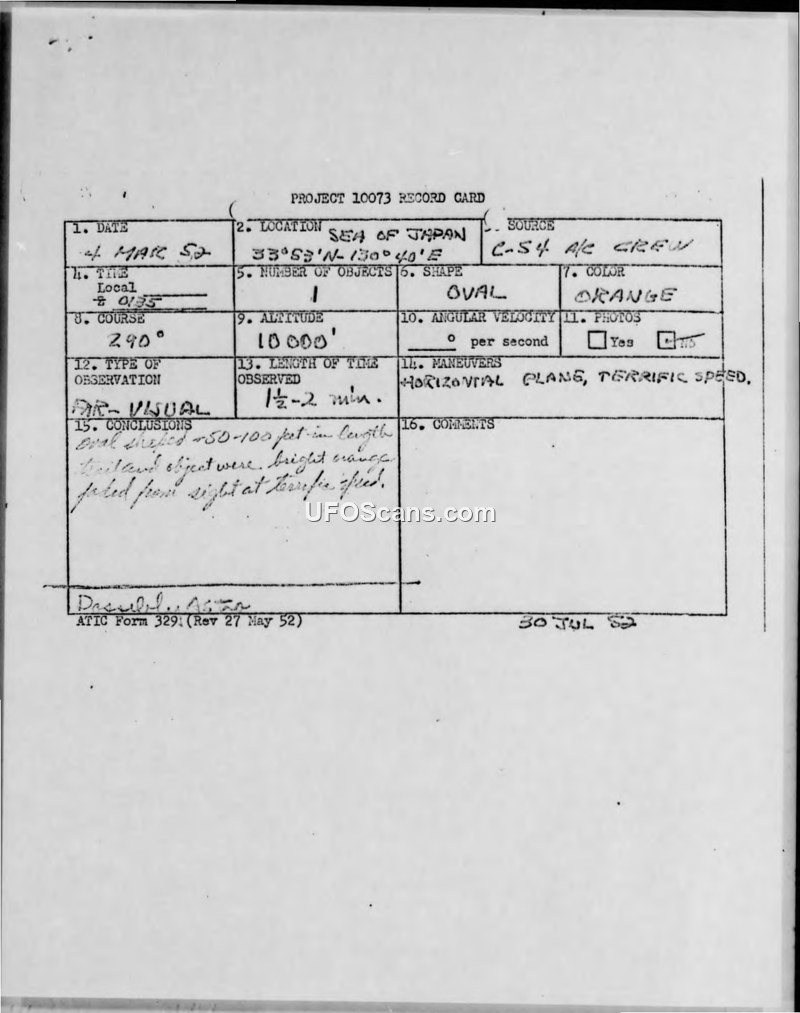 PROJECT 10073 RECORD CARD
1. DATE
4 MAR 52
2. LOCATION SEA OF JAPAN
33°53'N-130°40'E
SOURCE
C-54 A/C CREW
4. TIME
Local
0135
5. NUMBER OF OBJECTS
1
6. SHAPE
OVAL
7. COLOR
ORANGE
8. COURSE
290°
9. ALTITUDE
10000'
10. ANGULAR VELOCITY
° per second
11. PHOTOS
Yes
No
12. TYPE OF
OBSERVATION
AIR-VISUAL
13. LENGTH OF TIME
OBSERVED
1½-2 min.
14. MANEUVERS
HORIZONTAL PLANE, TERRIFIC SPEED.
15. CONCLUSIONS
Oval shaped 50-100 feet in length
trail and object were bright orange
faded from sight at terrific speed.
Possible Astro
16. COMMENTS
UFOScans.com
ATIC Form 329 (Rev 27 May 52)
30 JUL 52